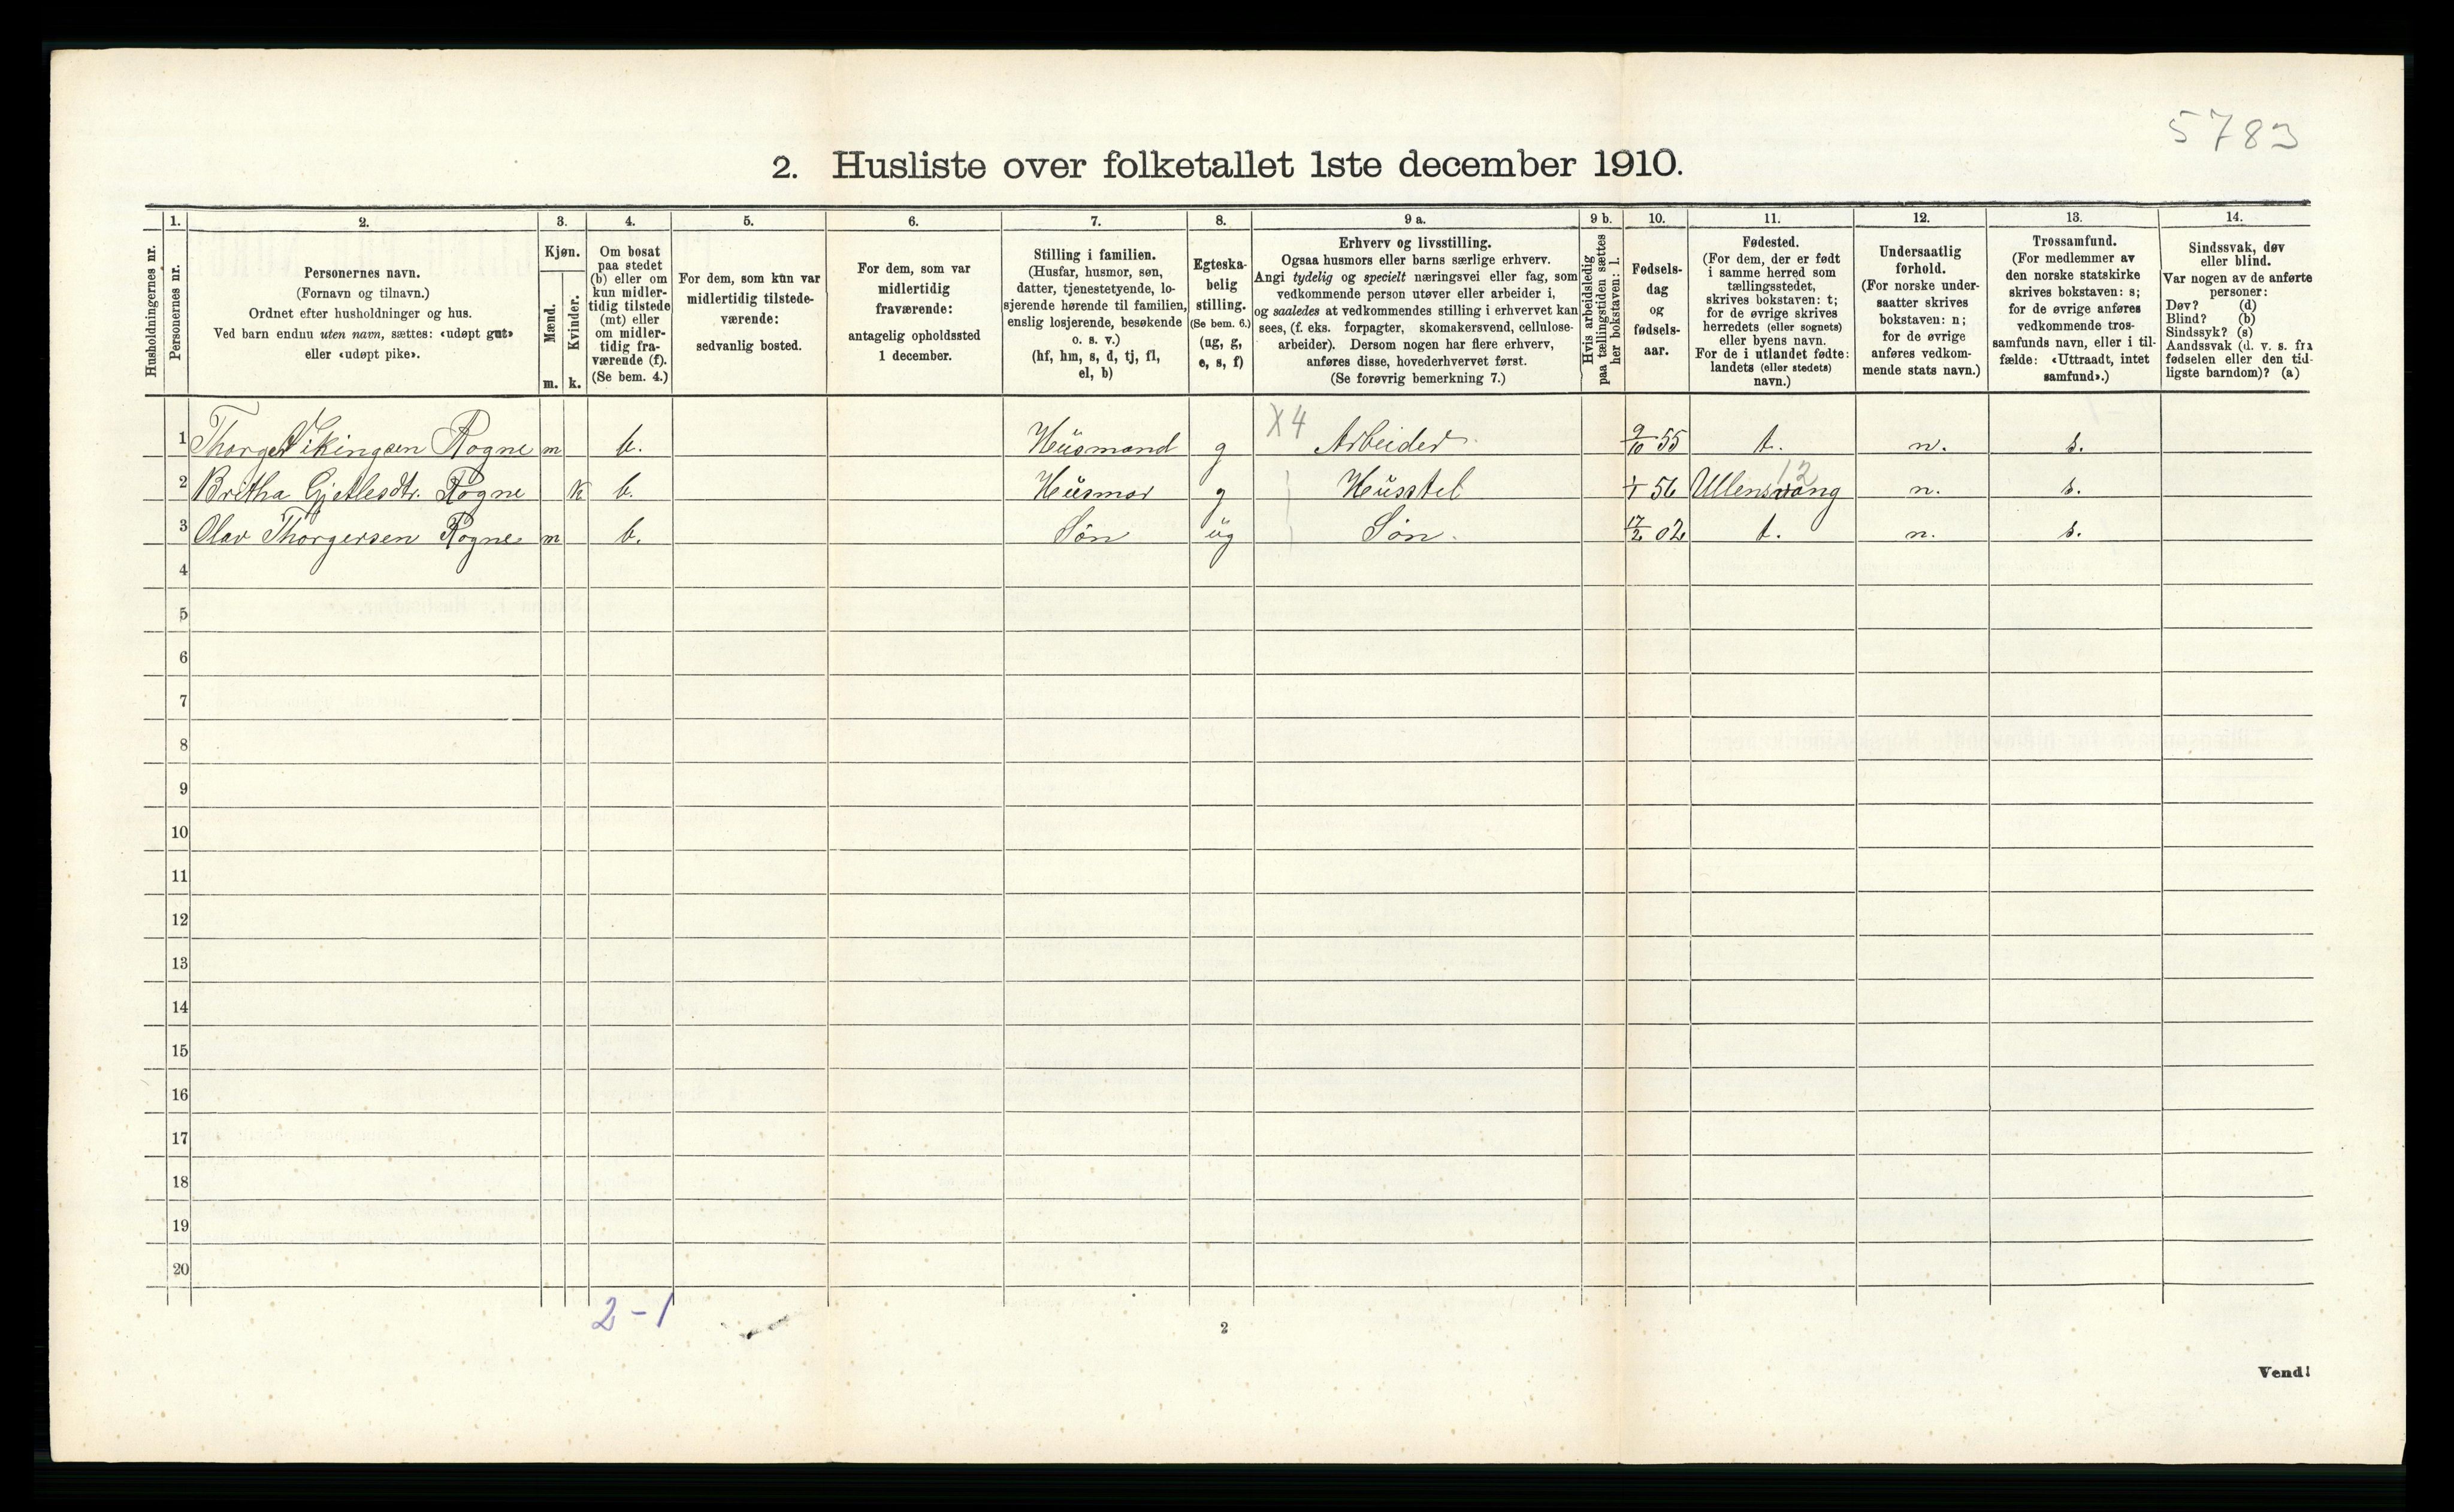 5783
2. Husliste over folketallet 1ste december 1910.
Husholdningernes nr.
1.
Personernes nr.
2.
Personernes navn.
(Fornavn og tilnavn.)
Ordnet efter husholdninger og hus.
Ved barn endnu uten navn, sættes: «udøpt gut»
eller «udøpt pike».
3.
Kjøn.
Mænd.
m.
Kvinder.
k.
4.
Om bosat
paa stedet
(b) eller om
kun midler-
tidig tilstede
(mt) eller
om midler-
tidig fra-
værende (f).
(Se bem. 4.)
5.
For dem, som kun var
midlertidig tilstede-
værende:
sedvanlig bosted.
6.
For dem, som var
midlertidig
fraværende:
antagelig opholdssted
1 december.
7.
Stilling i familien.
(Husfar, husmor, søn,
datter, tjenestetyende, lo-
sjerende hørende til familien,
enslig losjerende, besøkende
o. s. v.)
(hf, hm, s, d, tj, fl,
el, b)
8.
Egteska-
belig
stilling.
(Se bem. 6.)
(ug, g,
e, s, f)
9 a.
Erhverv og livsstilling.
Ogsaa husmors eller barns særlige erhverv.
Angi tydelig og specielt næringsvei eller fag, som
vedkommende person utøver eller arbeider i,
og saaledes at vedkommendes stilling i erhvervet kan
sees, (f. eks. forpagter, skomakersvend, cellulose-
arbeider). Dersom nogen har flere erhverv,
anføres disse, hovederhvervet først.
(Se forøvrig bemerkning 7.)
9 b.
Hvis arbeidsledig
paa tællingstiden sættes
her bokstaven: l.
10.
Fødsels-
dag
og
fødsels-
aar.
11.
Fødested.
(For dem, der er født
i samme herred som
tællingsstedet,
skrives bokstaven: t;
for de øvrige skrives
herredets (eller sognets)
eller byens navn.
For de i utlandet fødte:
landets (eller stedets)
navn.)
12.
Undersaatlig
forhold.
(For norske under-
saatter skrives
bokstaven: n;
for de øvrige
anføres vedkom-
mende stats navn.)
13.
Trossamfund.
(For medlemmer av
den norske statskirke
skrives bokstaven: s;
for de øvrige anføres
vedkommende tros-
samfunds navn, eller i til-
fælde: «Uttraadt, intet
samfund».)
14.
Sindssvak, døv
eller blind.
Var nogen av de anførte
personer:
Døv? (d)
Blind? (b)
Sindssyk? (s)
Aandssvak (d. v. s. fra
fødselen eller den tid-
ligste barndom)? (a)
X4
1 Thorger Vikingsen Rogne m b. Husmand g Arbeider 9/10 55 t. n. s.
12
2 Britha Gjetlesdtr. Rogne k b. Husmor g Husstel 1/1 56 Ullensvang n. s.
3 Olav Thorgersen Rogne m b. Søn ug Søn. 17/2 02 t. n. s.
4
5
6
7
8
9
10
11
12
13
14
15
16
17
18
19
20
2-1
2
Vend!